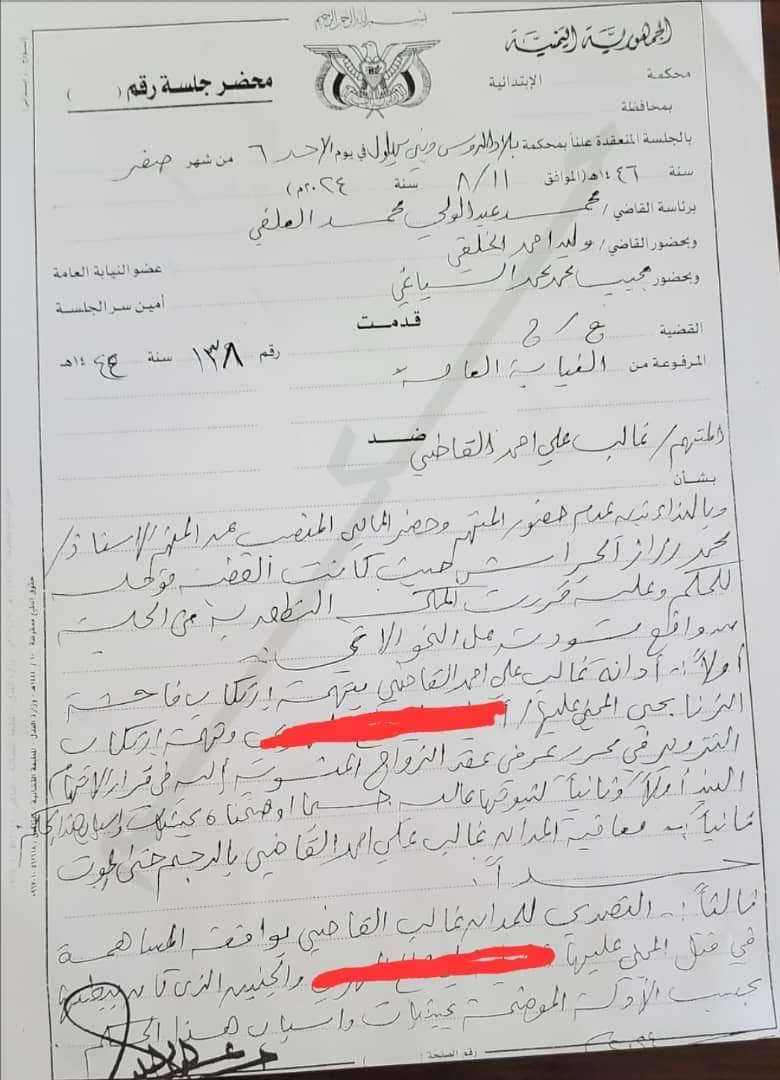 بسم الله الرحمن الرحيم
الجمهورية اليمنية
محكمة الإبتدائية
محضر جلسة رقم ( )
بمحافظة
بالجلسة المنعقدة علناً بمحكمة بلاد الروس وبني بهلول في يوم الاحد ٦ من شهر صفر
سنة ١٤٤٦هـ (الموافق ٨/١١ سنة ٢٠٢٤م)
برئاسة القاضي/ محمد عبدالولي محمد العلفي
وبحضور القاضي/ وليد احمد الخلقي عضو النيابة العامة
وبحضور مجيب محمد محمد السياغي أمين سر الجلسة
القضية ج/ج قدمت
رقم ١٣٨ سنة ١٤٤٥هـ
المرفوعة من النيابة العامة
ضد
المتهم/ غالب علي احمد القاضي
بشأن
وبالنداء تبين عدم حضور المتهم وحضر المحامي المنصب عن المتهم الاستاذ/
محمد الحراسي حيث كانت القضية مؤجلة
للحكم وعليه قررت المحكمة النطق به من الجلسة
من واقع مسودته على النحو الاتي:
أولاً:- أدانة غالب علي احمد القاضي بتهمة إرتكاب فاحشة
الزنا بحق المجني عليها/ وتهمة إرتكاب
التزوير في محرر عرفي عقد الزواج المنسوبة إليه في قرار الاتهام
البند أولاً وثانياً لثبوتها عليه حسبما اوضحناه بحيثيات واسباب هذا الحكم
ثانياً:- معاقبة المدان غالب علي احمد القاضي بالرجم حتى الموت
حداً.
ثالثاً:- التصدي للمدان غالب القاضي بواقعة المساهمة
في قتل المجني عليها والجنين الذي كان ببطنها
بحسب الأدلة الموضحة بحيثيات واسباب هذا الحكم
رقم الصفحة ( )